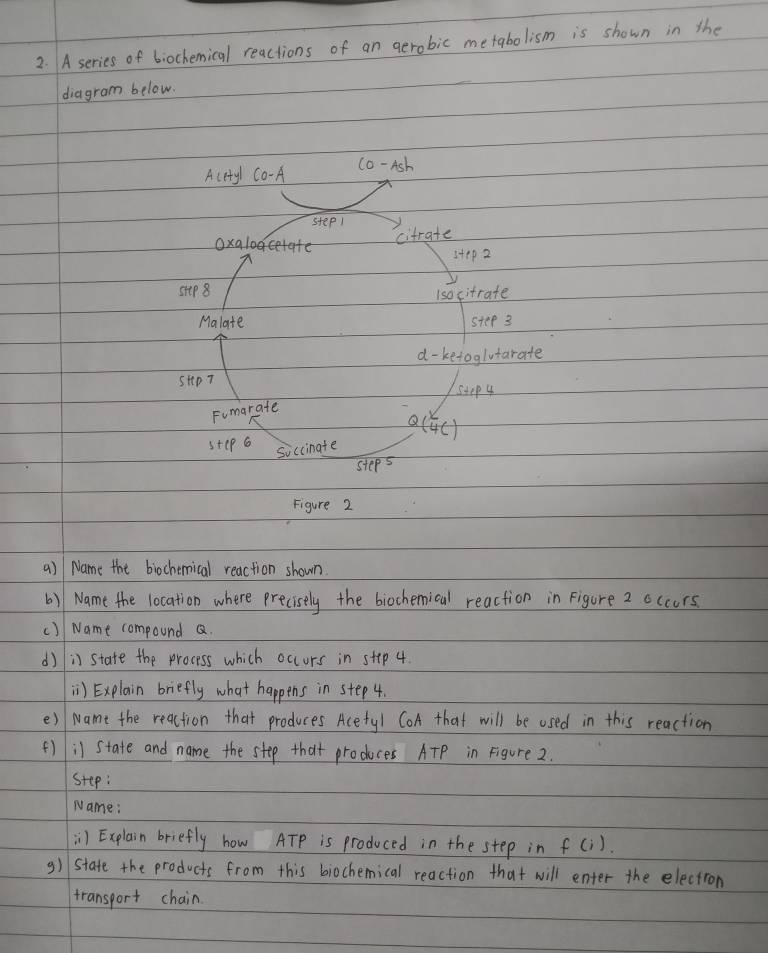 2. A series of biochemical reactions of an aerobic metabolism is shown in the
diagram below.
Acetyl Co-A
Co-Ash
step 1
Oxaloacetate
citrate
step 2
step 8
Isocitrate
Malate
step 3
α-ketoglutarate
step 7
step 4
Fumarate
Q(4C)
step 6
Succinate
step 5
Figure 2
a) Name the biochemical reaction shown.
b) Name the location where precisely the biochemical reaction in Figure 2 occurs.
c) Name compound Q.
d) i) State the process which occurs in step 4.
ii) Explain briefly what happens in step 4.
e) Name the reaction that produces Acetyl CoA that will be used in this reaction
f) i) State and name the step that produces ATP in Figure 2.
Step:
Name:
ii) Explain briefly how ATP is produced in the step in f (i).
g) State the products from this biochemical reaction that will enter the electron
transport chain.